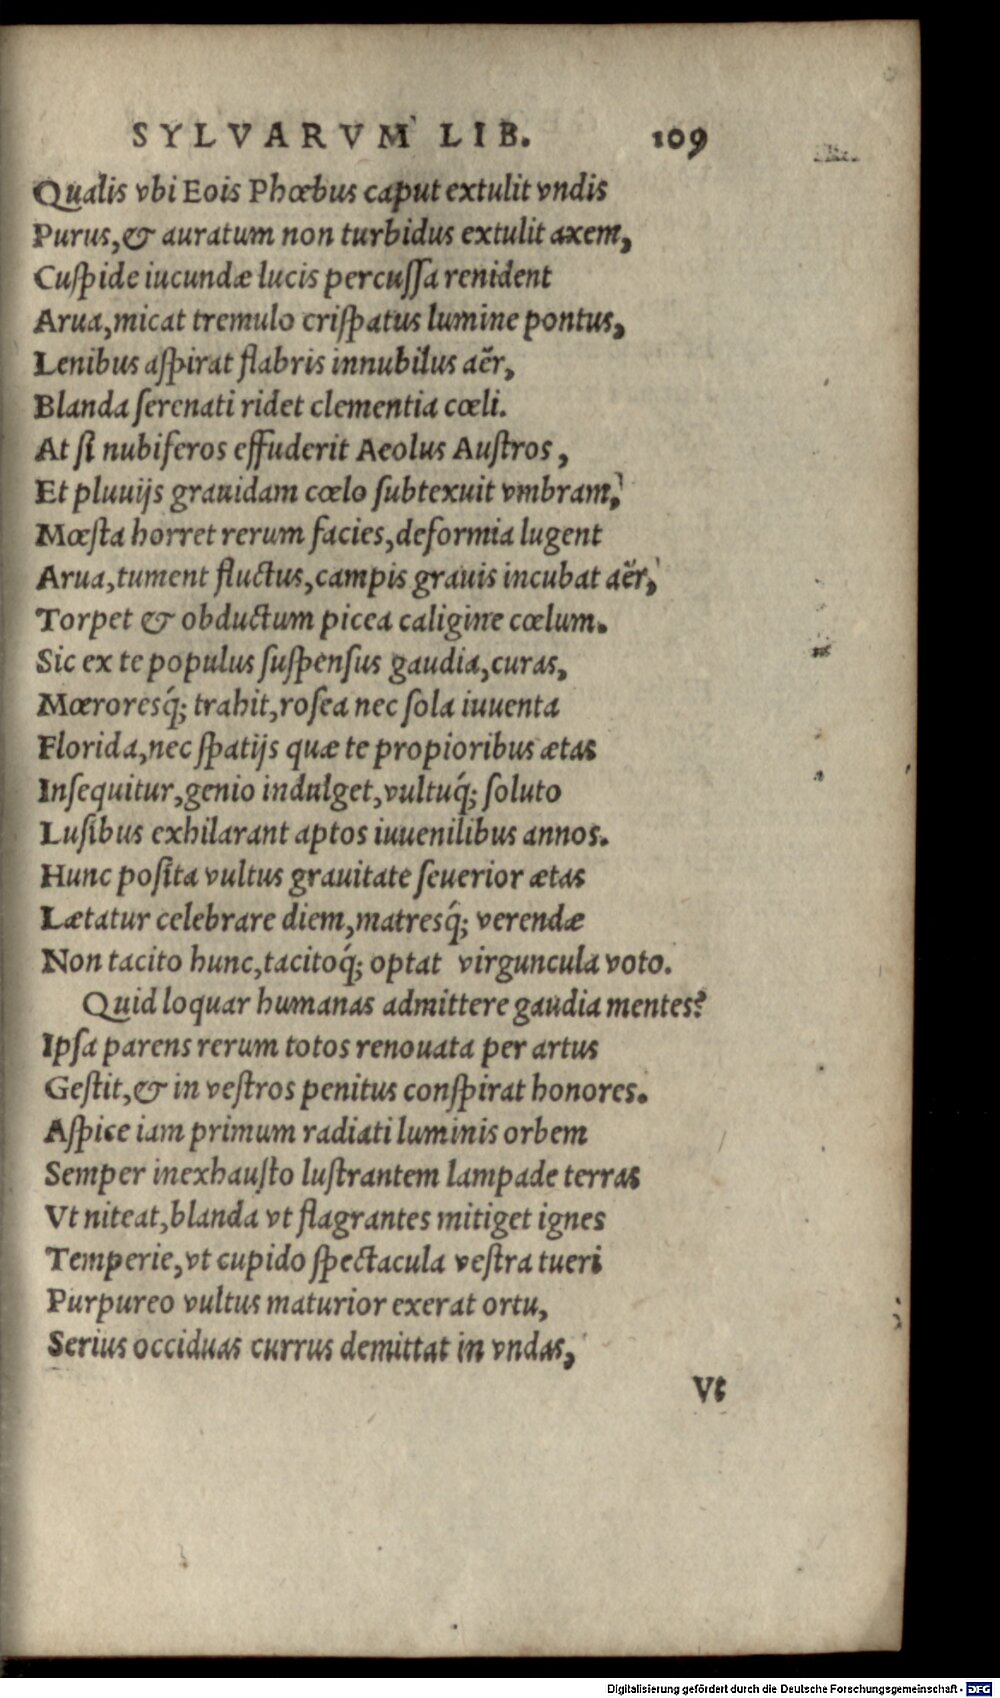 SYLVARVM LIB. 109
Qualis vbi Eois Phœbus caput extulit vndis
Purus, & auratum non turbidus extulit axem,
Cuſpide iucundæ lucis percuſſa renident
Arua, micat tremulo criſpatus lumine pontus,
Lenibus aſpirat flabris innubilus aër,
Blanda ſerenati ridet clementia cœli.
At ſi nubiferos effuderit Aeolus Auſtros,
Et pluuijs grauidam cœlo ſubtexuit vmbram,
Mœſta horret rerum facies, deformia lugent
Arua, tument fluctus, campis grauis incubat aër,
Torpet & obductum picea caligine cœlum.
Sic ex te populus ſuſpenſus gaudia, curas,
Mœroresq́; trahit, roſea nec ſola iuuenta
Florida, nec ſpatijs quæ te propioribus ætas
Inſequitur, genio indulget, vultuq́; ſoluto
Luſibus exhilarant aptos iuuenilibus annos.
Hunc poſita vultus grauitate ſeuerior ætas
Lætatur celebrare diem, matresq́; verendæ
Non tacito hunc, tacitoq́; optat virguncula voto.
Quid loquar humanas admittere gaudia mentes?
Ipſa parens rerum totos renouata per artus
Geſtit, & in veſtros penitus conſpirat honores.
Aſpice iam primum radiati luminis orbem
Semper inexhauſto luſtrantem lampade terras
Vt niteat, blanda vt flagrantes mitiget ignes
Temperie, vt cupido ſpectacula veſtra tueri
Purpureo vultus maturior exerat ortu,
Serius occiduas currus demittat in vndas,
Vt
Digitalisierung gefördert durch die Deutsche Forschungsgemeinschaft - DFG